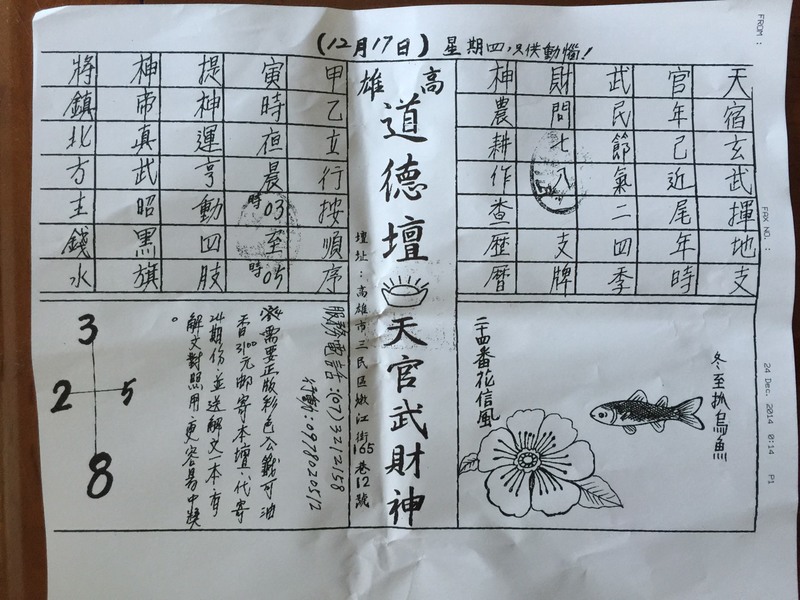 (12月17日)星期四,只供動惱!
FROM :
FAX NO. :
24 Dec. 2014 0:14 P1
天宿玄武揮地支
官年已近尾年時
武民節氣二四季
財問七八支牌
神農耕作查歷曆
冬至扒烏魚
二十四番花信風
高雄
道德壇
天官武財神
壇址:高雄市三民區嫩江街165巷12號
甲乙立行按順序
寅時夜晨時03至時05
提神運亨動四肢
神帝真武昭黑旗
將鎮北方主錢水
服務電話:(07)3212158
行動:0978020512
需要正版彩色公籤可油
香3100元郵寄本壇、代寄
24期份、並送解文一本、有
解文對照用、更容易中獎。
3
2 5
8